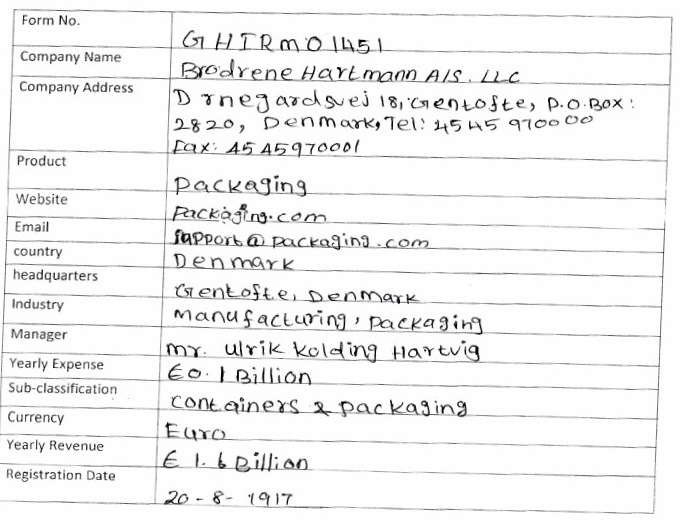 Form No.
GHIRMO1451
Company Name
Brodrene Hartmann A/S. LLC
Company Address
D rnegardsvej 18, Gentofte, P.O.Box:
2820, Denmark, Tel: 4545 970000
Fax: 4545970001
Product
Packaging
Website
Packaging.com
Email
support@packaging.com
country
Denmark
headquarters
Gentofte, Denmark
Industry
Manufacturing, packaging
Manager
mr. ulrik kolding Hartvig
Yearly Expense
€0.1 Billion
Sub-classification
containers & packaging
Currency
Euro
Yearly Revenue
€ 1.6 Billion
Registration Date
20-8-1917